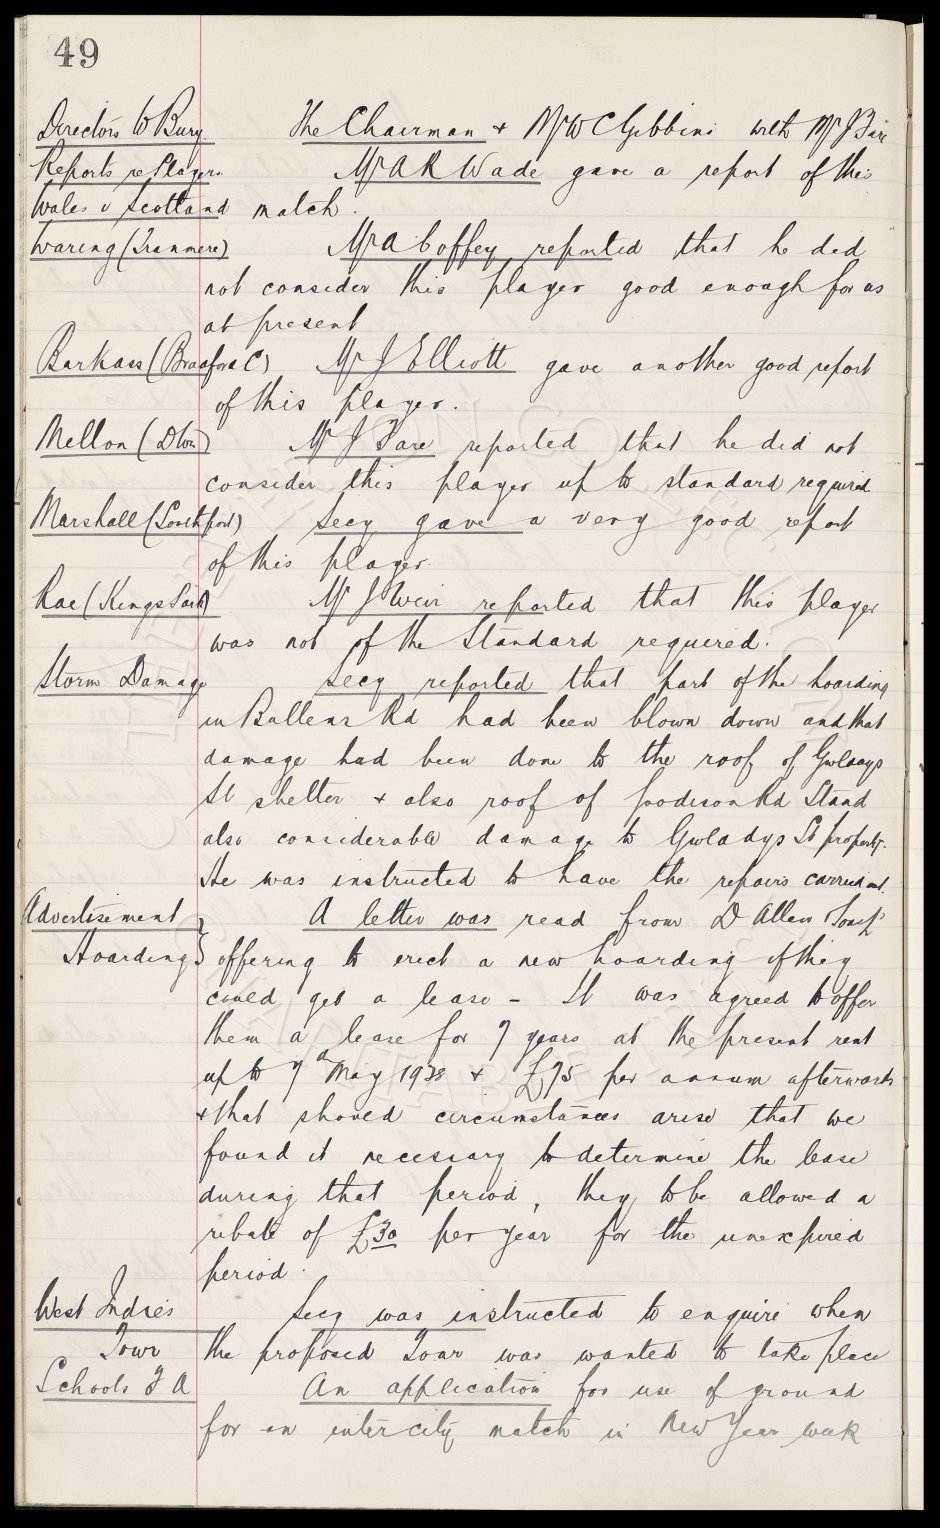 49
Directors to Bury. The Chairman & Mr W C Gibbins with Mr J Fare
Reports re Players. Mr A R Wade gave a report of this
Wales v Scotland match.
Waring (Tranmere) Mr A Coffey reported that he did
not consider this player good enough for us
at present
Barkass (Bradford C) Mr J Elliott gave another good report
of this player.
Mellon (Dton) Mr J Fare reported that he did not
consider this player up to standard required
Marshall (Southport) Secy gave a very good report
of this player.
Rae (Kings Park) Mr J Weir reported that this player
was not of the Standard required.
Storm Damage Secy reported that part of the hoarding
in Bullens Rd had been blown down and that
damage had been done to the roof of Gwladys
St shelter & also roof of Goodison Rd Stand
also considerable damage to Gwladys St property.
He was instructed to have the repairs carried out.
Advertisement A letter was read from D Allen Sons
Hoarding } offering to erect a new hoarding if they
could get a lease - It was agreed to offer
them a lease for 7 years at the present rent
up to 7th May 1938 & £75 per annum afterwards
& that should circumstances arise that we
found it necessary to determine the lease
during that period, they to be allowed a
rebate of £30 per year for the unexpired
period.
West Indies Secy was instructed to enquire when
Tour the proposed Tour was wanted to take place
Schools F A An application for use of ground
for an inter city match in New Year week